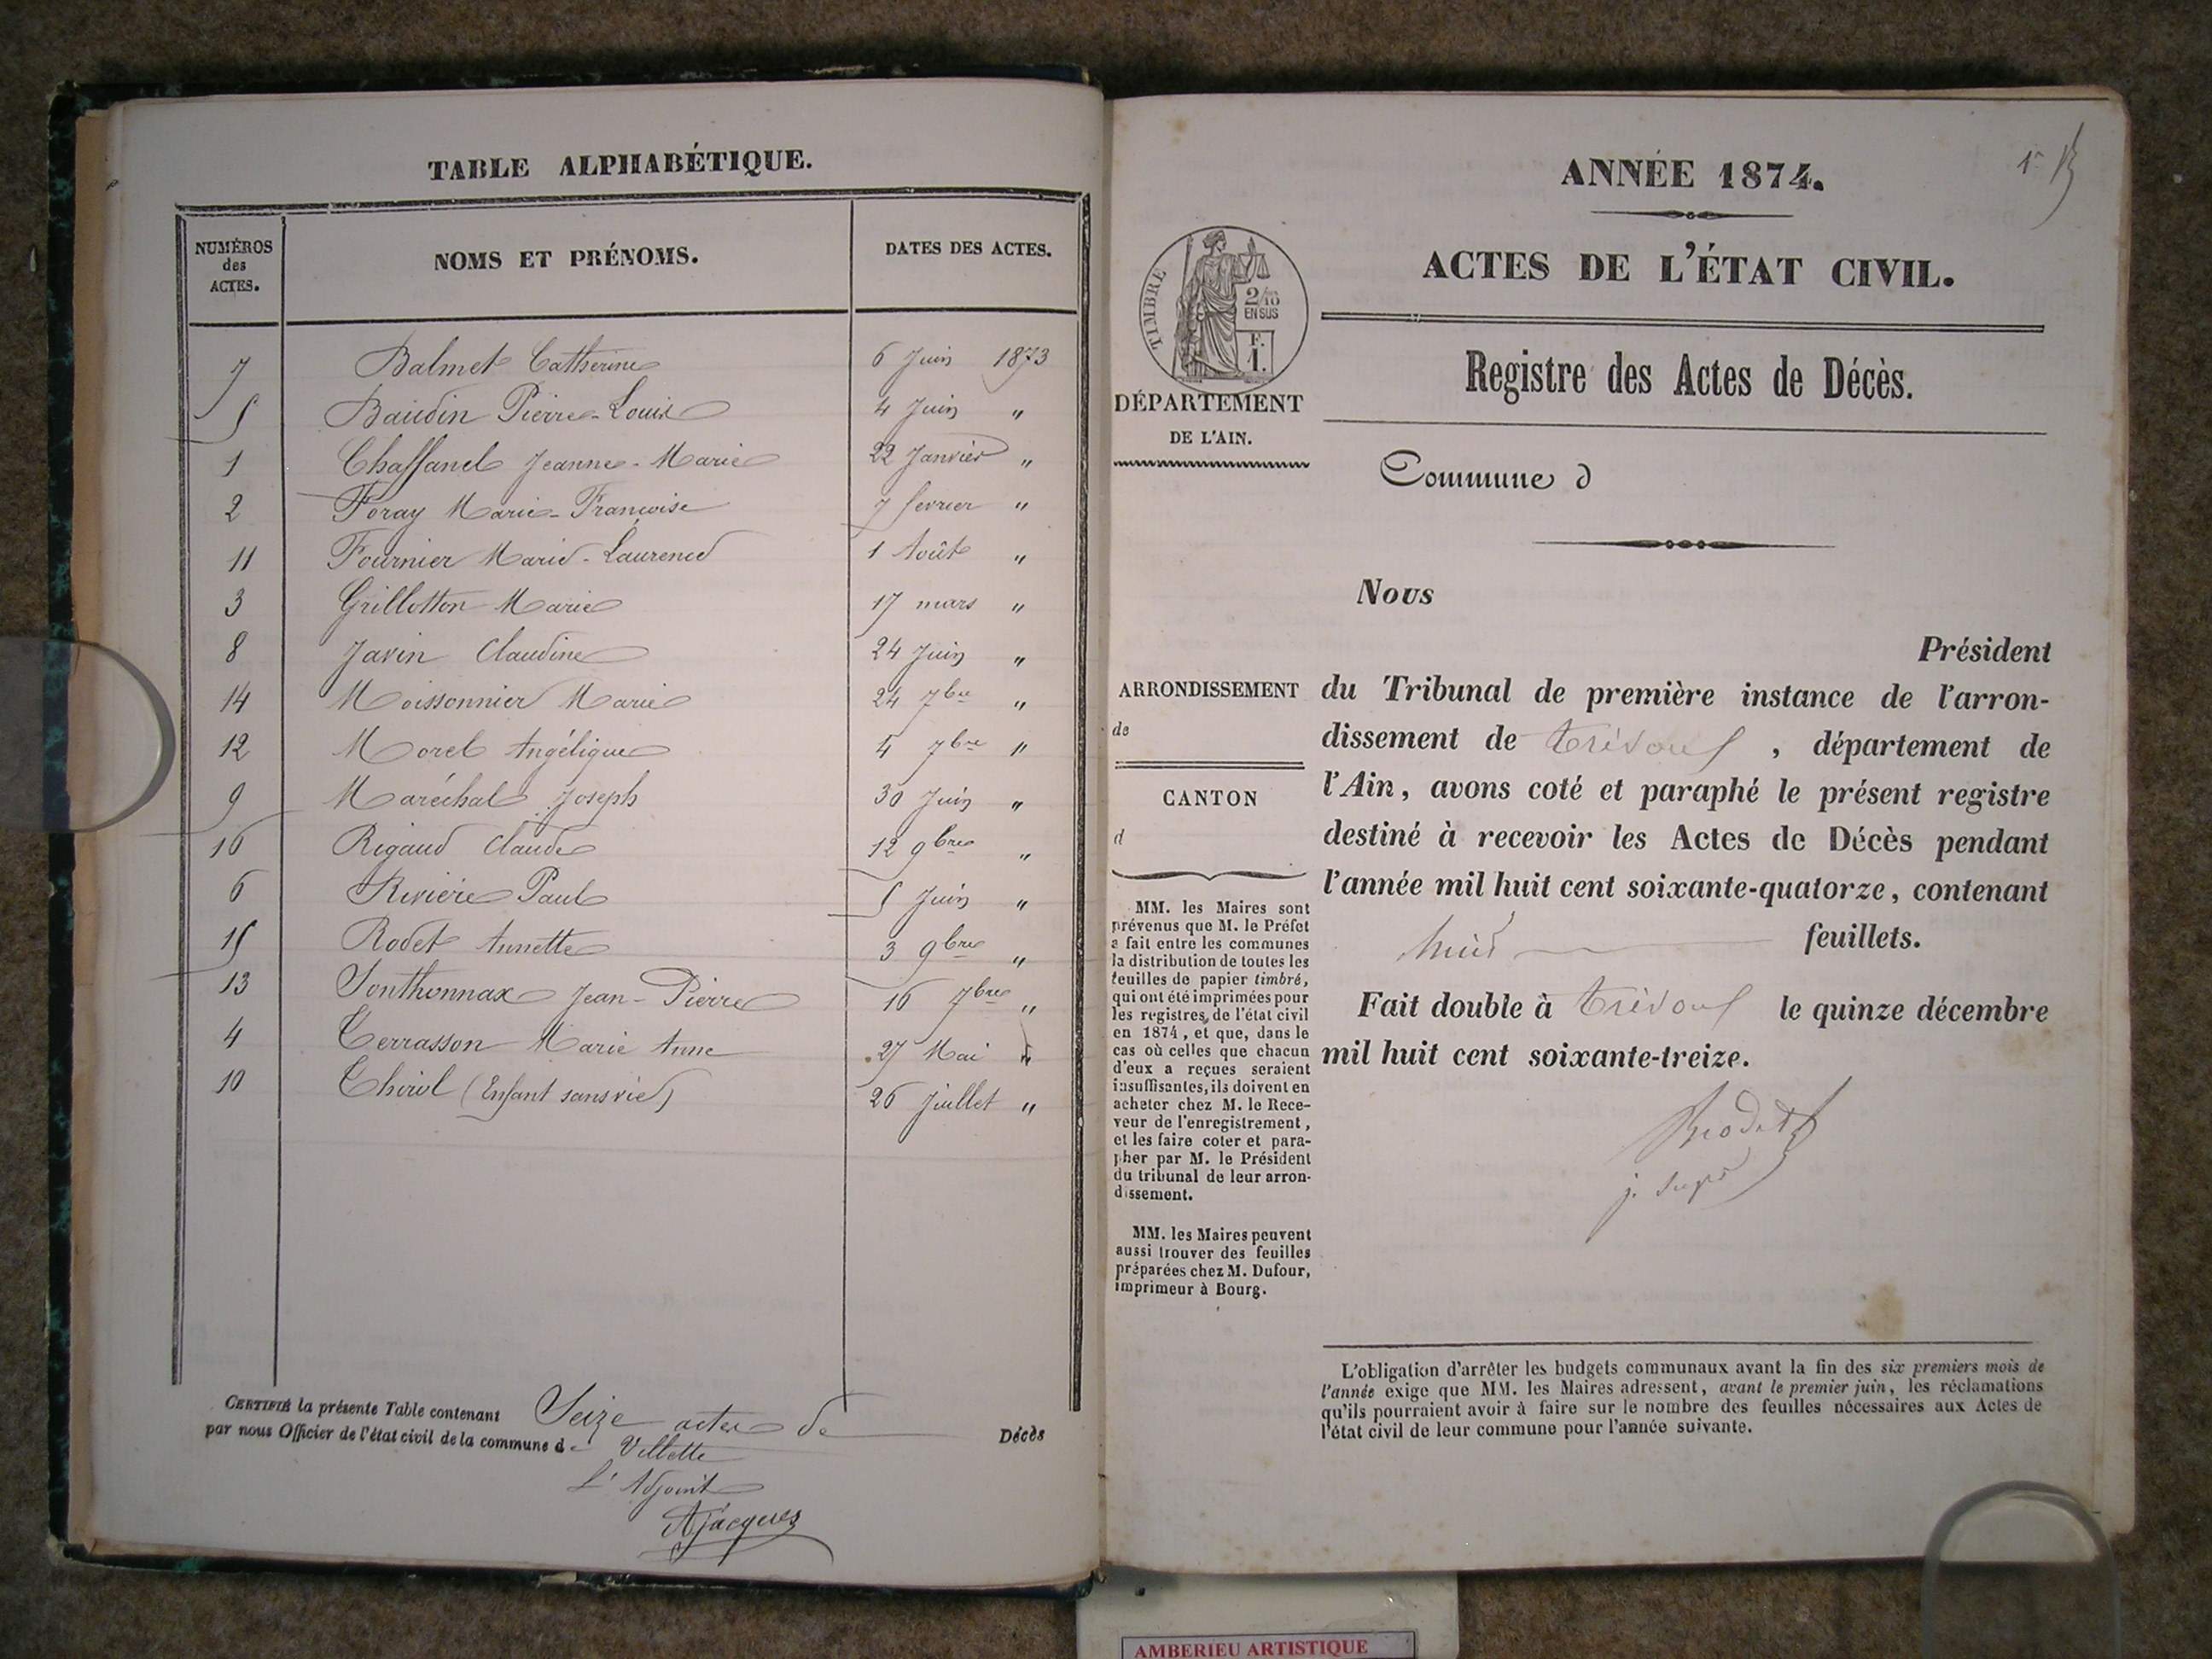 TABLE ALPHABÉTIQUE.
NUMÉROS des ACTES. NOMS ET PRÉNOMS. DATES DES ACTES.
7 Balmet Catherine 6 Juin 1873
5 Baudin Pierre-Louis 4 Juin "
1 Chaffanel Jeanne-Marie 22 Janvier "
2 Foray Marie-Francoise 7 fevrier "
11 Fournier Marie-Laurence 1 Août "
3 Grillotton Marie 17 mars "
8 Javin Claudine 24 Juin "
14 Moissonnier Marie 24 7bre "
12 Morel Angélique 4 7bre "
9 Maréchal Joseph 30 Juin "
16 Rigaud Claude 12 9bre "
6 Rivière Paul 5 Juin "
15 Rodet Annette 3 9bre "
13 Sonthonnax Jean-Pierre 16 7bre "
4 Terrasson Marie Anne 27 Mai "
10 Thirol (Enfant sans vie) 26 Juillet "
CERTIFIÉ la présente Table contenant Seize actes de Décès
par nous Officier de l'état civil de la commune de Villette
L'Adjoint
A Jacques
1er
ANNÉE 1874.
ACTES DE L'ÉTAT CIVIL.
Registre des Actes de Décès.
TIMBRE
2/10
EN SUS
F.
1.
DÉPARTEMENT
DE L'AIN.
Commune d
Nous
Président
ARRONDISSEMENT
de
CANTON
d
du Tribunal de première instance de l'arron-
dissement de Trévoux, département de
l'Ain, avons coté et paraphé le présent registre
destiné à recevoir les Actes de Décès pendant
l'année mil huit cent soixante-quatorze, contenant
huit feuillets.
Fait double à Trévoux le quinze décembre
mil huit cent soixante-treize.
Brodet
j. sup
MM. les Maires sont
prévenus que M. le Préfet
a fait entre les communes
la distribution de toutes les
feuilles de papier timbré,
qui ont été imprimées pour
les registres de l'état civil
en 1874, et que, dans le
cas où celles que chacun
d'eux a reçues seraient
insuffisantes, ils doivent en
acheter chez M. le Rece-
veur de l'enregistrement,
et les faire coter et para-
pher par M. le Président
du tribunal de leur arron-
dissement.
MM. les Maires peuvent
aussi trouver des feuilles
préparées chez M. Dufour,
imprimeur à Bourg.
L'obligation d'arrêter les budgets communaux avant la fin des six premiers mois de
l'année exige que MM. les Maires adressent, avant le premier juin, les réclamations
qu'ils pourraient avoir à faire sur le nombre des feuilles nécessaires aux Actes de
l'état civil de leur commune pour l'année suivante.
AMBERIEU ARTISTIQUE